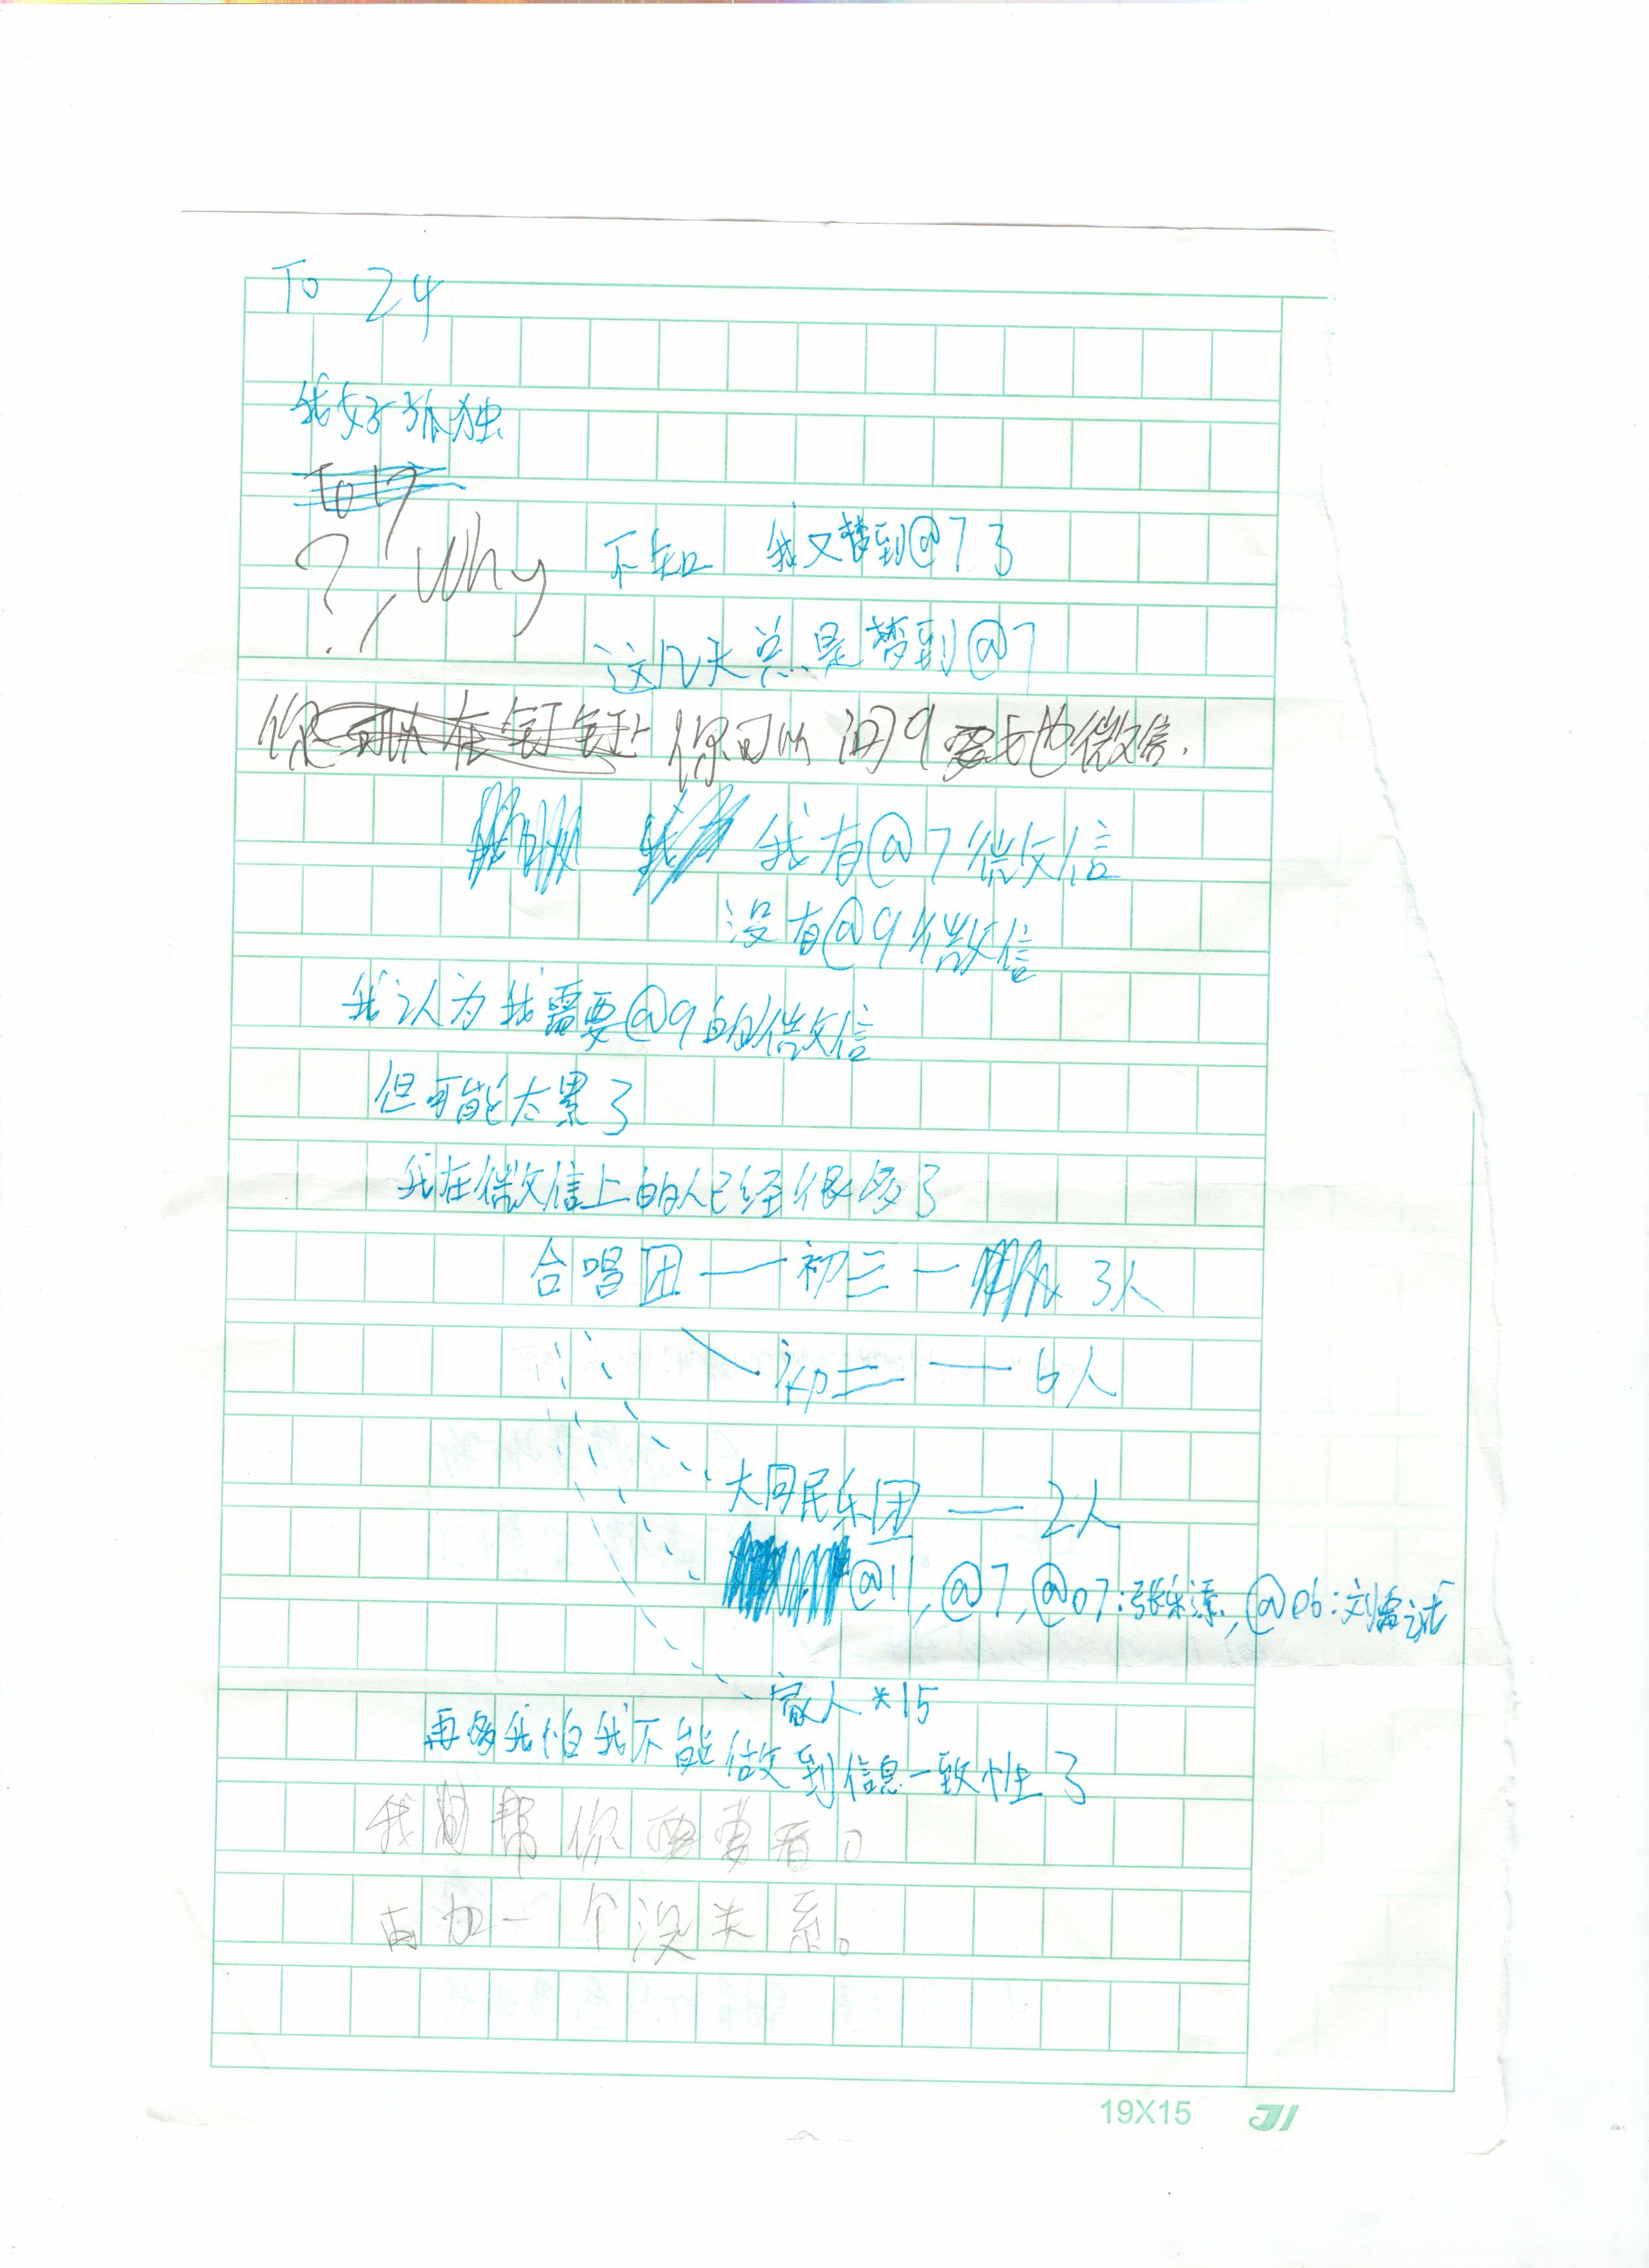 To 24
我好孤独
To 17
?, Why 不知 我又梦到@7了
这几天总是梦到@7
你可以在钉钉上 你可以问9要她微信.
我 我有@7微信
没有@9微信
我认为我需要@9的微信
但可能太累了
我在微信上的人已经很多了
合唱团——初三— 3人
初二——6人
大同民乐团——2人
@11, @7, @07:张乐, @06:刘
家人*15
再多我怕我不能做到信息一致性了
我帮你要要看。
再加一个没关系。
19X15